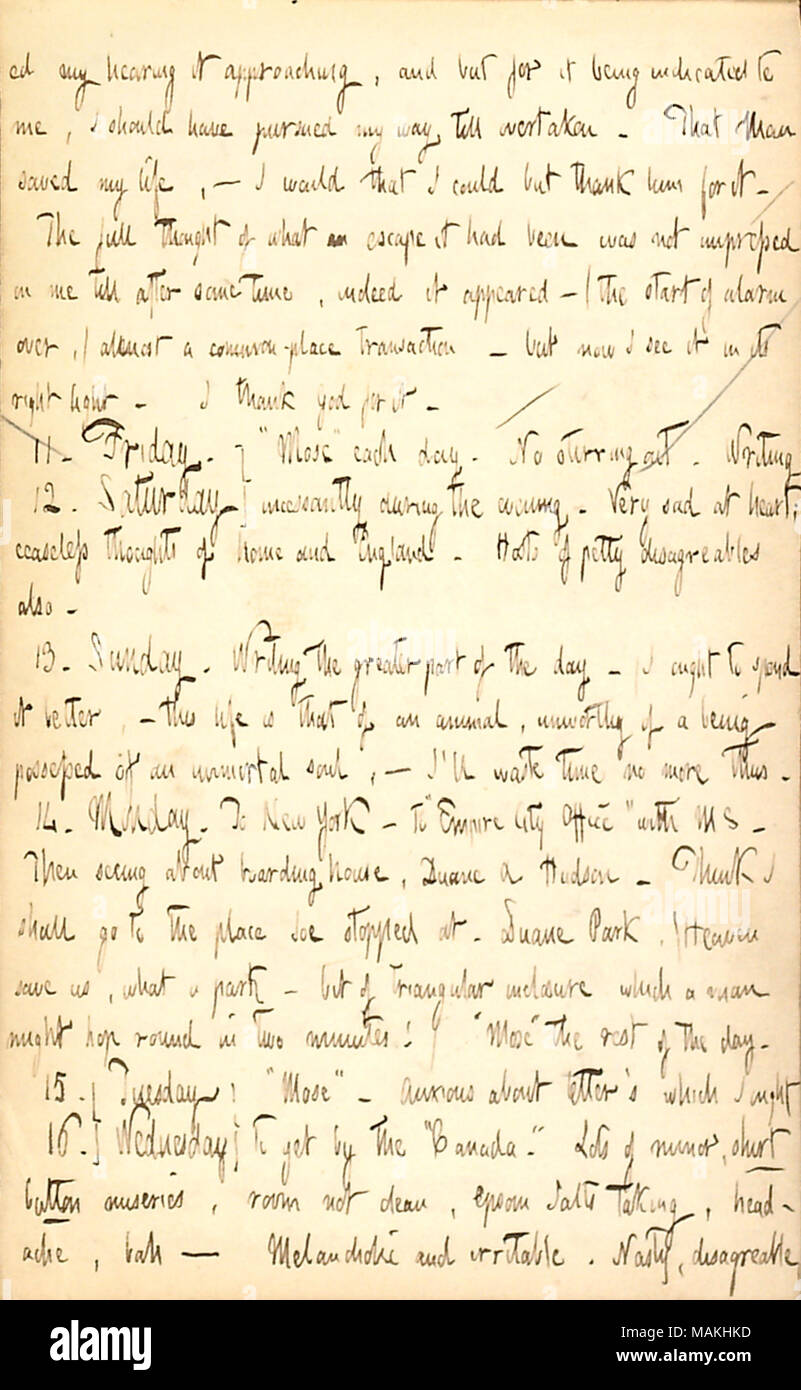 ed my hearing it approaching, and but for it being indicated to
me, I should have pursued my way till overtaken - That Man
saved my life, - I would that I could but thank him for it -
The full thought of what an escape it had been was not impressed
on me till after some time, indeed it appeared - (the start of alarm
over,) almost a common-place transaction - but now I see it in its
right light - I thank God for it -
11 - Friday - ] "Mose" each day - No stirring out - Writing
12 - Saturday ] incessantly during the evening - Very sad at heart;
ceaseless thoughts of home and England - Hosts of petty disagreables
also -
13 - Sunday - Writing the greater part of the day - I ought to spend
it better, - this life is that of an animal, unworthy of a being
possessed of an immortal soul, - I'll waste time no more thus -
14 - Monday - To New York - to "Empire City Office" with MS -
Then seeing about boarding house, Duane & Hudson - Think I
shall go to the place Joe stopped at - Duane Park, (Heaven
save us, what a park - bit of triangular inclosure which a man
might hop round in two minutes!) "Mose" the rest of the day -
15 - [ Tuesday ] "Mose" - Anxious about letter's which I ought
16 - [ Wednesday ] to get by the "Canada." Lots of minor, shirt
button miseries, room not clean, epsom salts taking, head-
ache, bah - Melancholic and irritable. Nasty, disagreable
alamy
Image ID: MAKHKD
www.alamy.com